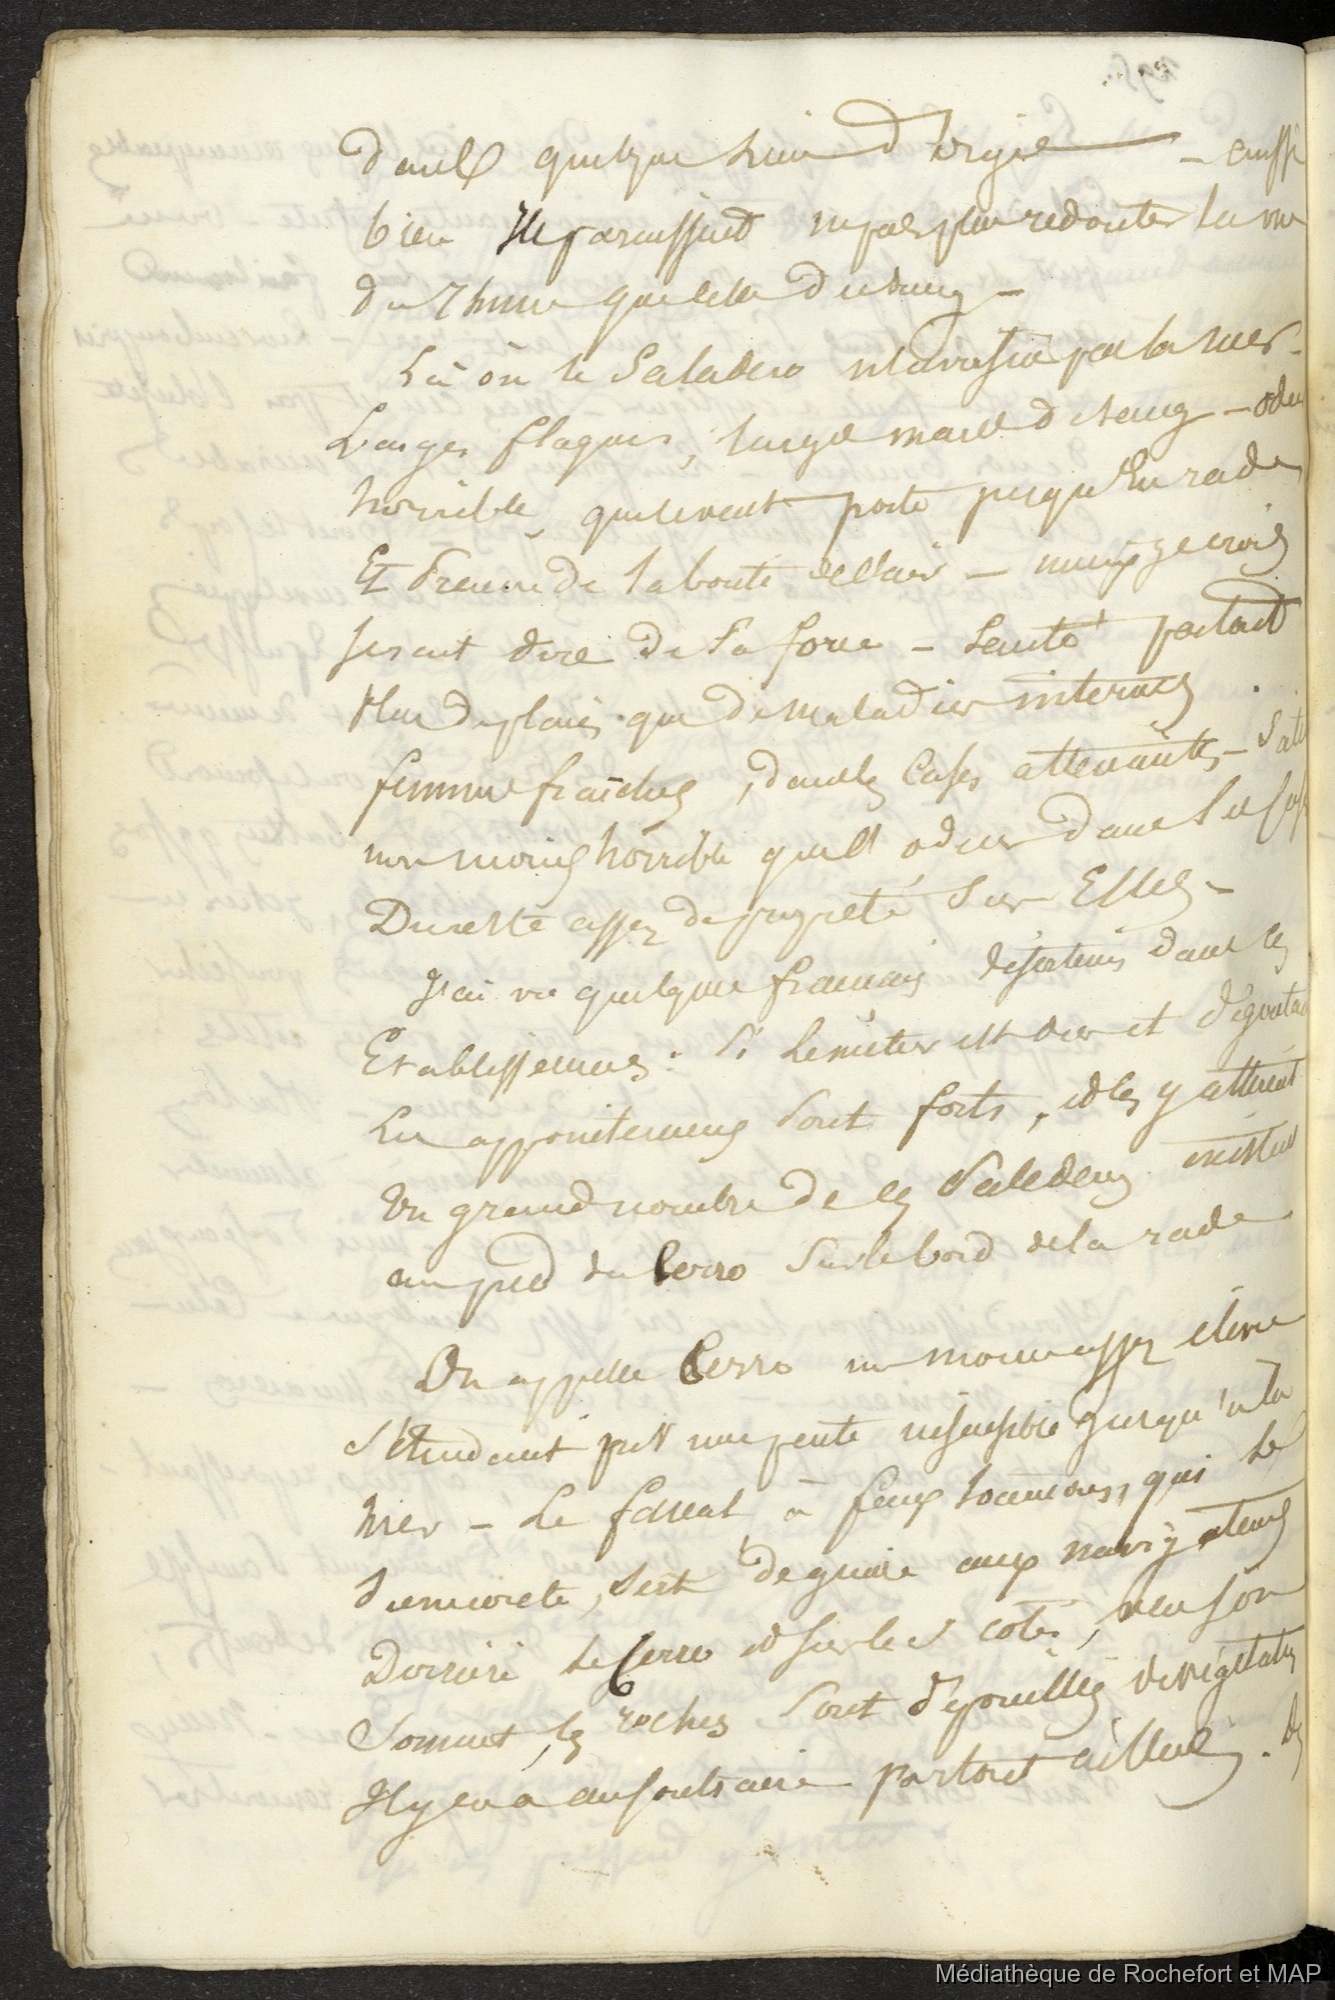 dans quelque d'orgie — aussi
bien Ils paraissent ne pas plus redouter la vue
du Rhum que celle du sang —
Là où le Saladero n'est pas par la mer —
Larges flaques, large mare de sang — odeur
horrible, que le vent porte jusqu'En rade
Et Preuve de la bonté de l'air — mais je crois
sérait dire de sa force — Santé partout
Plus de plaies que de maladies internes
femmes fraîches, dans les Cases attenantes —
non moins horrible que l'odeur dans les
Du reste assez de propreté sur Elles —
J'ai vu quelques francais déserteurs dans ces
Etablissemens : Si le métier est dur et dégoutant
Les appointemens sont forts, et les y attirent
Un grand nombre de ces Saladeros existent
au pied du Cerro sur le bord de la rade
On appelle Cerro un morne assez élevé
S'étendant par une pente insensible jusqu'à la
mer — Le fanal à feux tournans, qui le
surmonte, sert de guide aux navigateurs
Derrière le Cerro et sur les cotés, vers son
Sommet, les roches sont dépouillées de végétation
Il y en a au contraire partout ailleurs. Des
Médiathèque de Rochefort et MAP